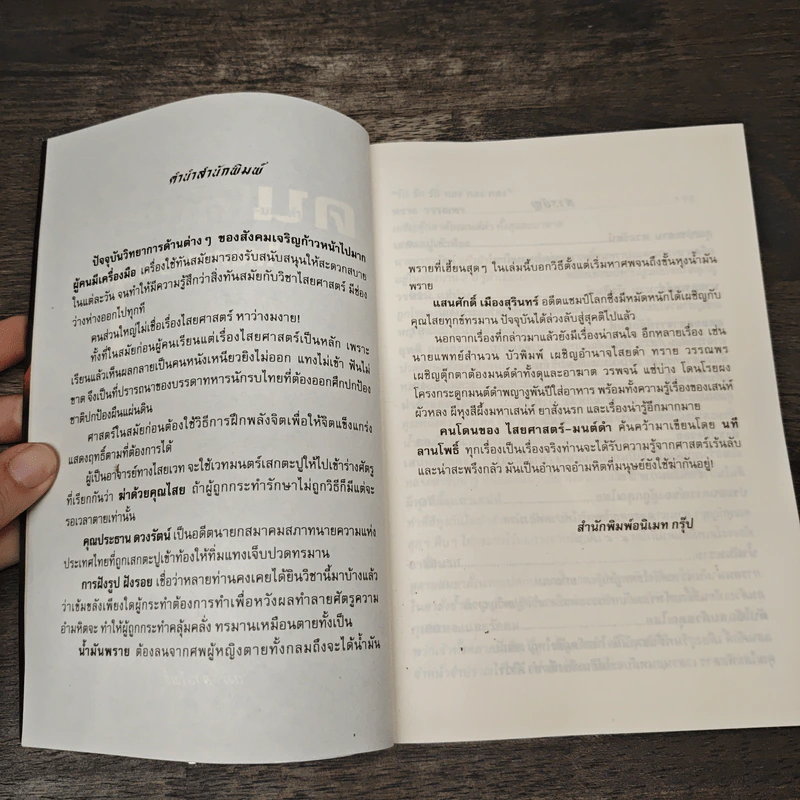 คำนำสำนักพิมพ์
ปัจจุบันวิทยาการด้านต่างๆ ของสังคมเจริญก้าวหน้าไปมาก
ผู้คนมีเครื่องมือ เครื่องใช้ทันสมัยมารองรับสนับสนุนให้สะดวกสบาย
ในแต่ละวัน จนทำให้มีความรู้สึกว่าสิ่งทันสมัยกับวิชาไสยศาสตร์ มีช่อง
ว่างห่างออกไปทุกที
คนส่วนใหญ่ไม่เชื่อเรื่องไสยศาสตร์ หาว่างมงาย!
ทั้งที่ในสมัยก่อนผู้คนเรียนแต่เรื่องไสยศาสตร์เป็นหลัก เพราะ
เรียนแล้วเห็นผลกลายเป็นคนหนังเหนียวยิงไม่ออก แทงไม่เข้า ฟันไม่
ขาด จึงเป็นที่ปรารถนาของบรรดาทหารนักรบไทยที่ต้องออกศึกปกป้อง
ชาติปกป้องผืนแผ่นดิน
ศาสตร์ในสมัยก่อนต้องใช้วิธีการฝึกพลังจิตเพื่อให้จิตแข็งแกร่ง
แสดงฤทธิ์ตามที่ต้องการได้
ผู้เป็นอาจารย์ทางไสยเวท จะใช้เวทมนตร์เสกตะปูให้ไปเข้าร่างศัตรู
ที่เรียกกันว่า ฆ่าด้วยคุณไสย ถ้าผู้ถูกกระทำรักษาไม่ถูกวิธีก็มีแต่จะ
รอเวลาตายเท่านั้น
คุณประธาน ดวงรัตน์ เป็นอดีตนายกสมาคมสภาทนายความแห่ง
ประเทศไทยที่ถูกเสกตะปูเข้าท้องให้ทิ่มแทงเจ็บปวดทรมาน
การฝังรูป ฝังรอย เชื่อว่าหลายท่านคงเคยได้ยินวิชานี้มาบ้างแล้ว
ว่าเข้มขลังเพียงใดผู้กระทำต้องการทำเพื่อหวังผลทำลายศัตรูความ
อำมหิตจะ ทำให้ผู้ถูกกระทำคลุ้มคลั่ง ทรมานเหมือนตายทั้งเป็น
น้ำมันพราย ต้องลนจากศพผู้หญิงตายทั้งกลมถึงจะได้น้ำมัน
พรายที่เฮี้ยนสุดๆ ในเล่มนี้บอกวิธีตั้งแต่เริ่มหาศพจนถึงขั้นหุงน้ำมัน
พราย
แสนศักดิ์ เมืองสุรินทร์ อดีตแชมป์โลกซึ่งมีหมัดหนักได้เผชิญกับ
คุณไสยทุกข์ทรมาน ปัจจุบันได้ล่วงลับสู่สุคติไปแล้ว
นอกจากเรื่องที่กล่าวมาแล้วยังมีเรื่องน่าสนใจ อีกหลายเรื่อง เช่น
นายแพทย์สำนวน บัวพิมพ์ เผชิญอำนาจไสยดำ ทราย วรรณพร
เผชิญตุ๊กตาต้องมนต์ดำทั้งดุและอาฆาต วรพจน์ แซ่บ่าง โดนโรยผง
โครงกระดูกมนต์ดำพญางูพันปีใส่อาหาร พร้อมทั้งความรู้เรื่องของเสน่ห์
ผัวหลง ผีหุงสีผึ้งมหาเสน่ห์ ยาสั่งนรก และเรื่องน่ารู้อีกมากมาย
คนโดนของ ไสยศาสตร์-มนต์ดำ ค้นคว้ามาเขียนโดย นที
ลานโพธิ์ ทุกเรื่องเป็นเรื่องจริงท่านจะได้รับความรู้จากศาสตร์เร้นลับ
และน่าสะพรึงกลัว มันเป็นอำนาจอำมหิตที่มนุษย์ยังใช้ฆ่ากันอยู่!
สำนักพิมพ์อนิเมท กรุ๊ป